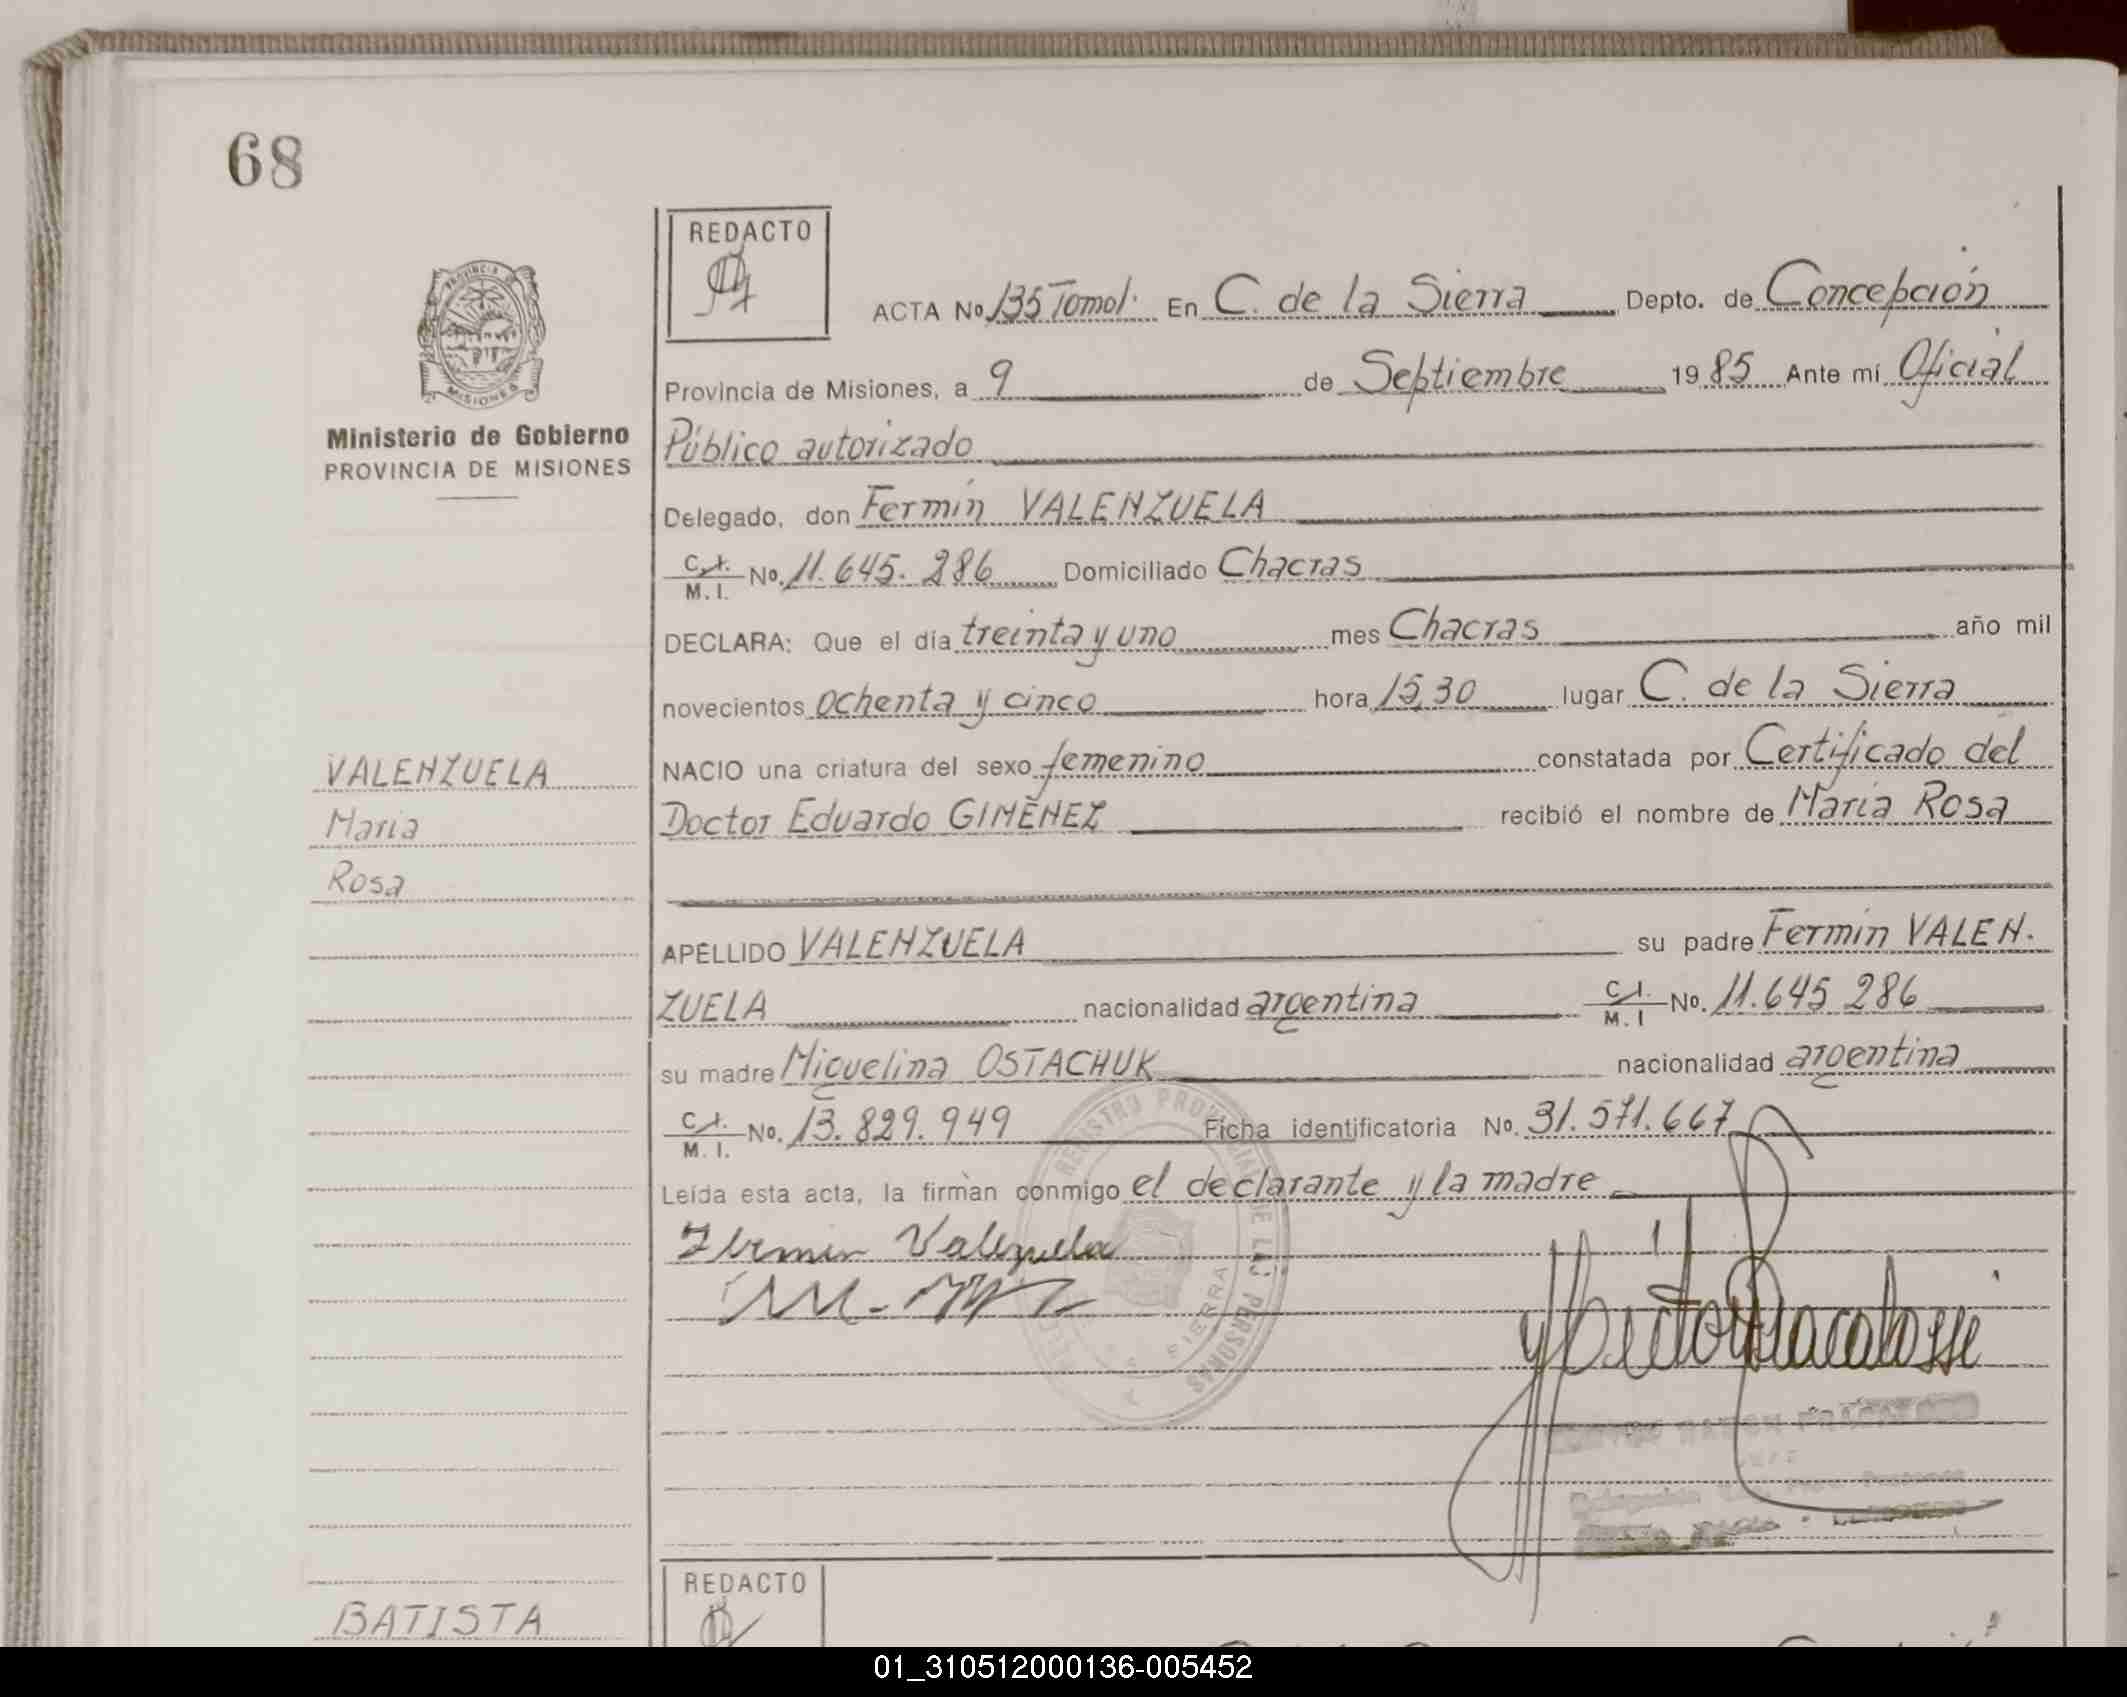 68
REDACTO
PROVINCIA DE
MISIONES
Ministerio de Gobierno
PROVINCIA DE MISIONES
ACTA No 135 Tomo I. En C. de la Sierra Depto. de Concepción
Provincia de Misiones, a 9 de Septiembre 1985 Ante mí Oficial
Público autorizado
Delegado, don Fermín VALENZUELA
C.I. M.I. No. 11.645.286 Domiciliado Chacras
DECLARA: Que el día treinta y uno mes Chacras año mil
novecientos ochenta y cinco hora 15,30 lugar C. de la Sierra
NACIO una criatura del sexo femenino constatada por Certificado del
Doctor Eduardo GIMÉNEZ recibió el nombre de María Rosa
VALENZUELA
María
Rosa
APELLIDO VALENZUELA su padre Fermín VALEN.
ZUELA nacionalidad argentina C.I. M.I No. 11.645 286
su madre Miguelina OSTACHUK nacionalidad argentina
C.I. M.I. No. 13.829.949 Ficha identificatoria No. 31.571.667
Leída esta acta, la firman conmigo el declarante y la madre
Fermin Valezuela
REGISTRO PROVINCIAL DE LAS PERSONAS
SIERRA
REDACTO
BATISTA
01_310512000136-005452